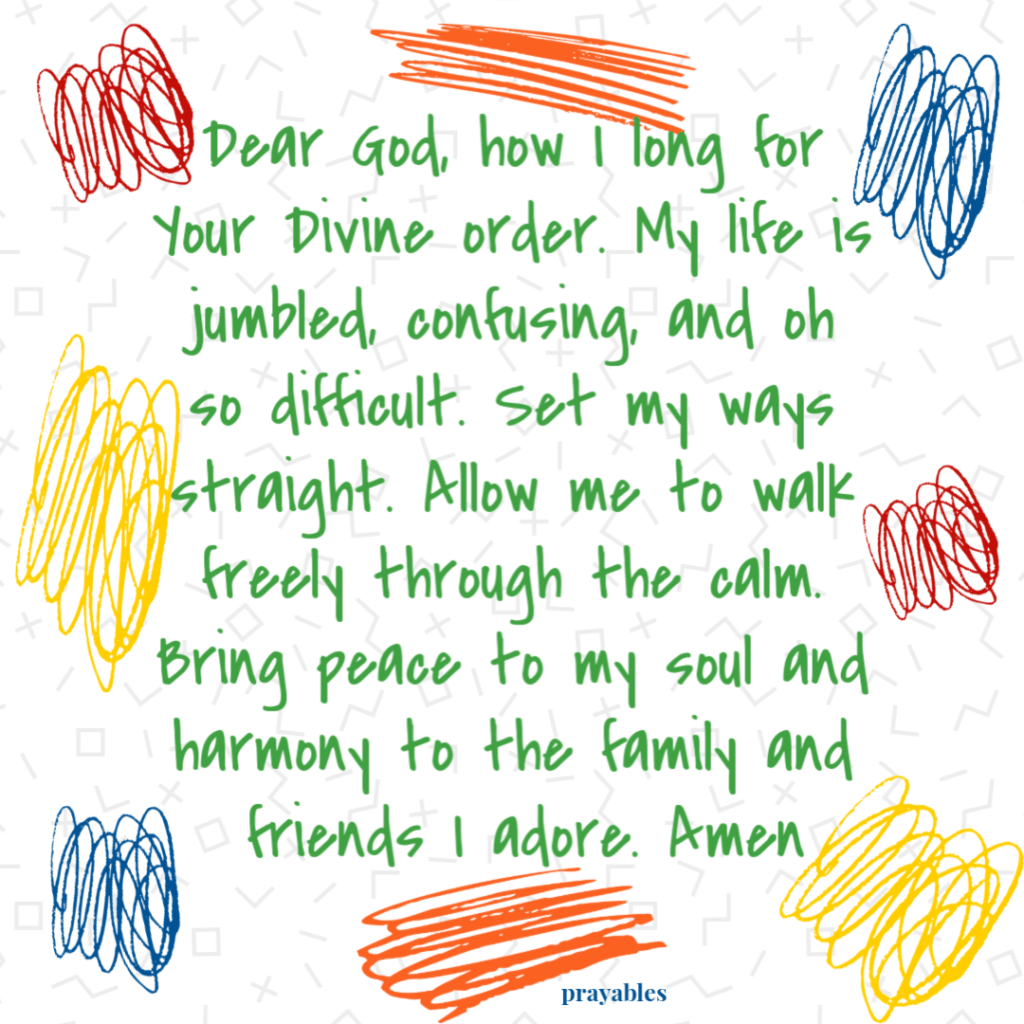 Dear God, how I long for
Your Divine order. My life is
jumbled, confusing, and oh
so difficult. Set my ways
straight. Allow me to walk
freely through the calm.
Bring peace to my soul and
harmony to the family and
friends I adore. Amen
prayables